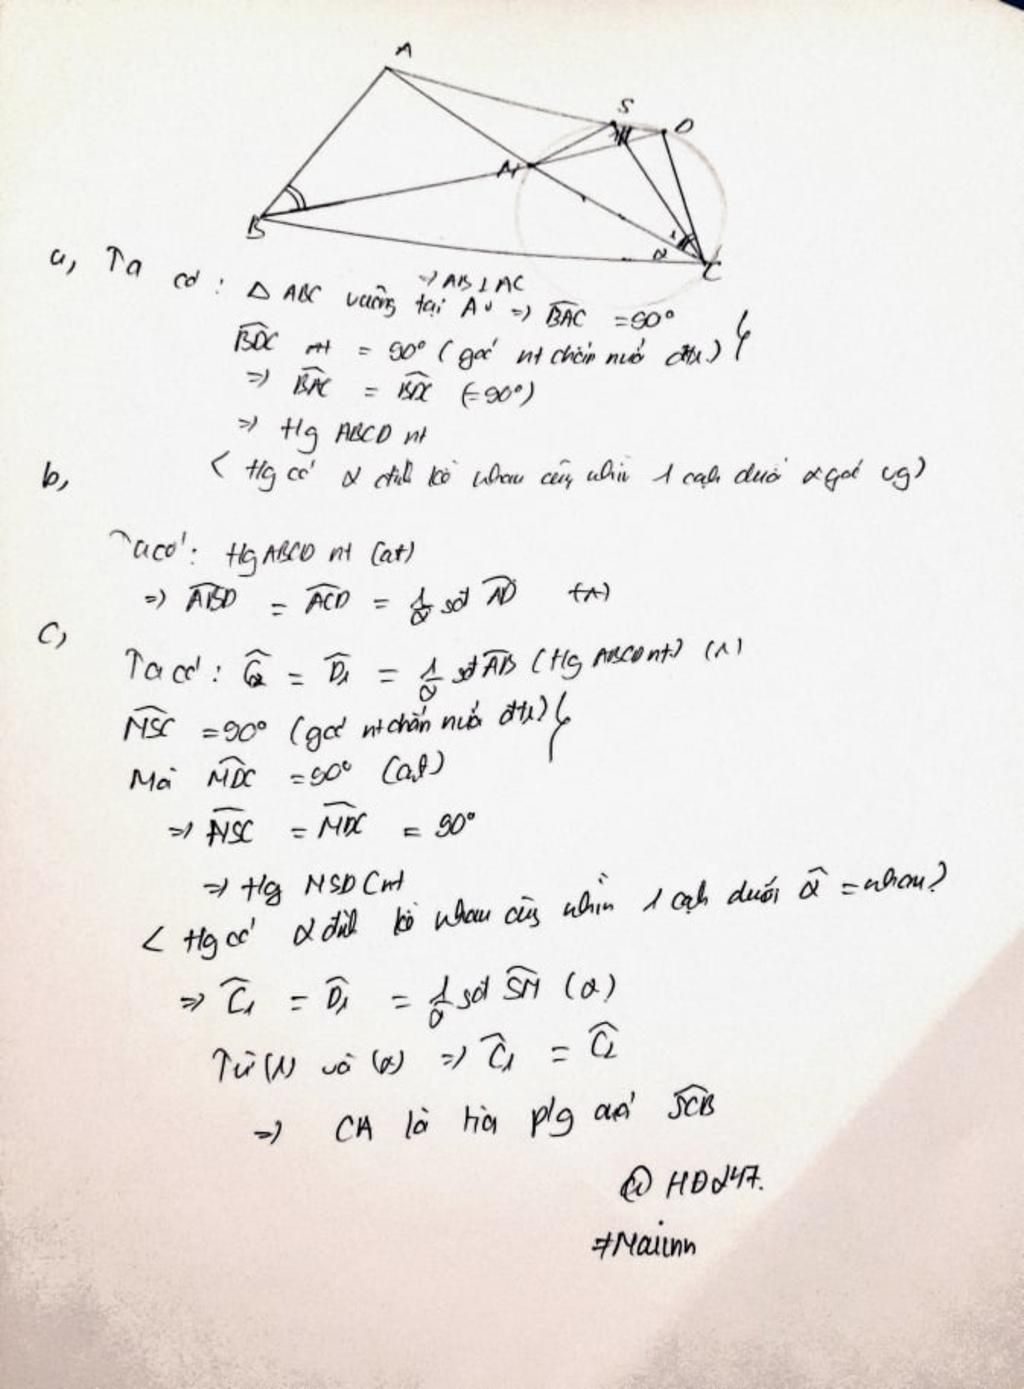 A
S
D
M
B
C
1
2
a, Ta có: △ ABC vuông tại A => BAC = 90°
=> AB ⊥ AC
BDC nt = 90° (góc nt chắn nửa đtr)
=> BAC = BDC (=90°)
=> Hg ABCD nt
< Hg có 2 đỉnh kề nhau cùng nhìn 1 cạnh dưới 2 góc vg)
b,
Ta có: Hg ABCD nt (at)
=> ABD = ACD = 1/2 sđ AD
c,
Ta có: C2 = D1 = 1/2 sđ AB (Hg ABCD nt) (1)
MSC = 90° (góc nt chắn nửa đtr)
Mà MDC = 90° (at)
=> MSC = MDC = 90°
=> Hg MSDC nt
< Hg có 2 đỉnh kề nhau cùng nhìn 1 cạnh dưới 2 = nhau)
=> C1 = D1 = 1/2 sđ SM (2)
Từ (1) và (2) => C1 = C2
=> CA là tia p/g của SCB
@ HD247.
#Maiinn